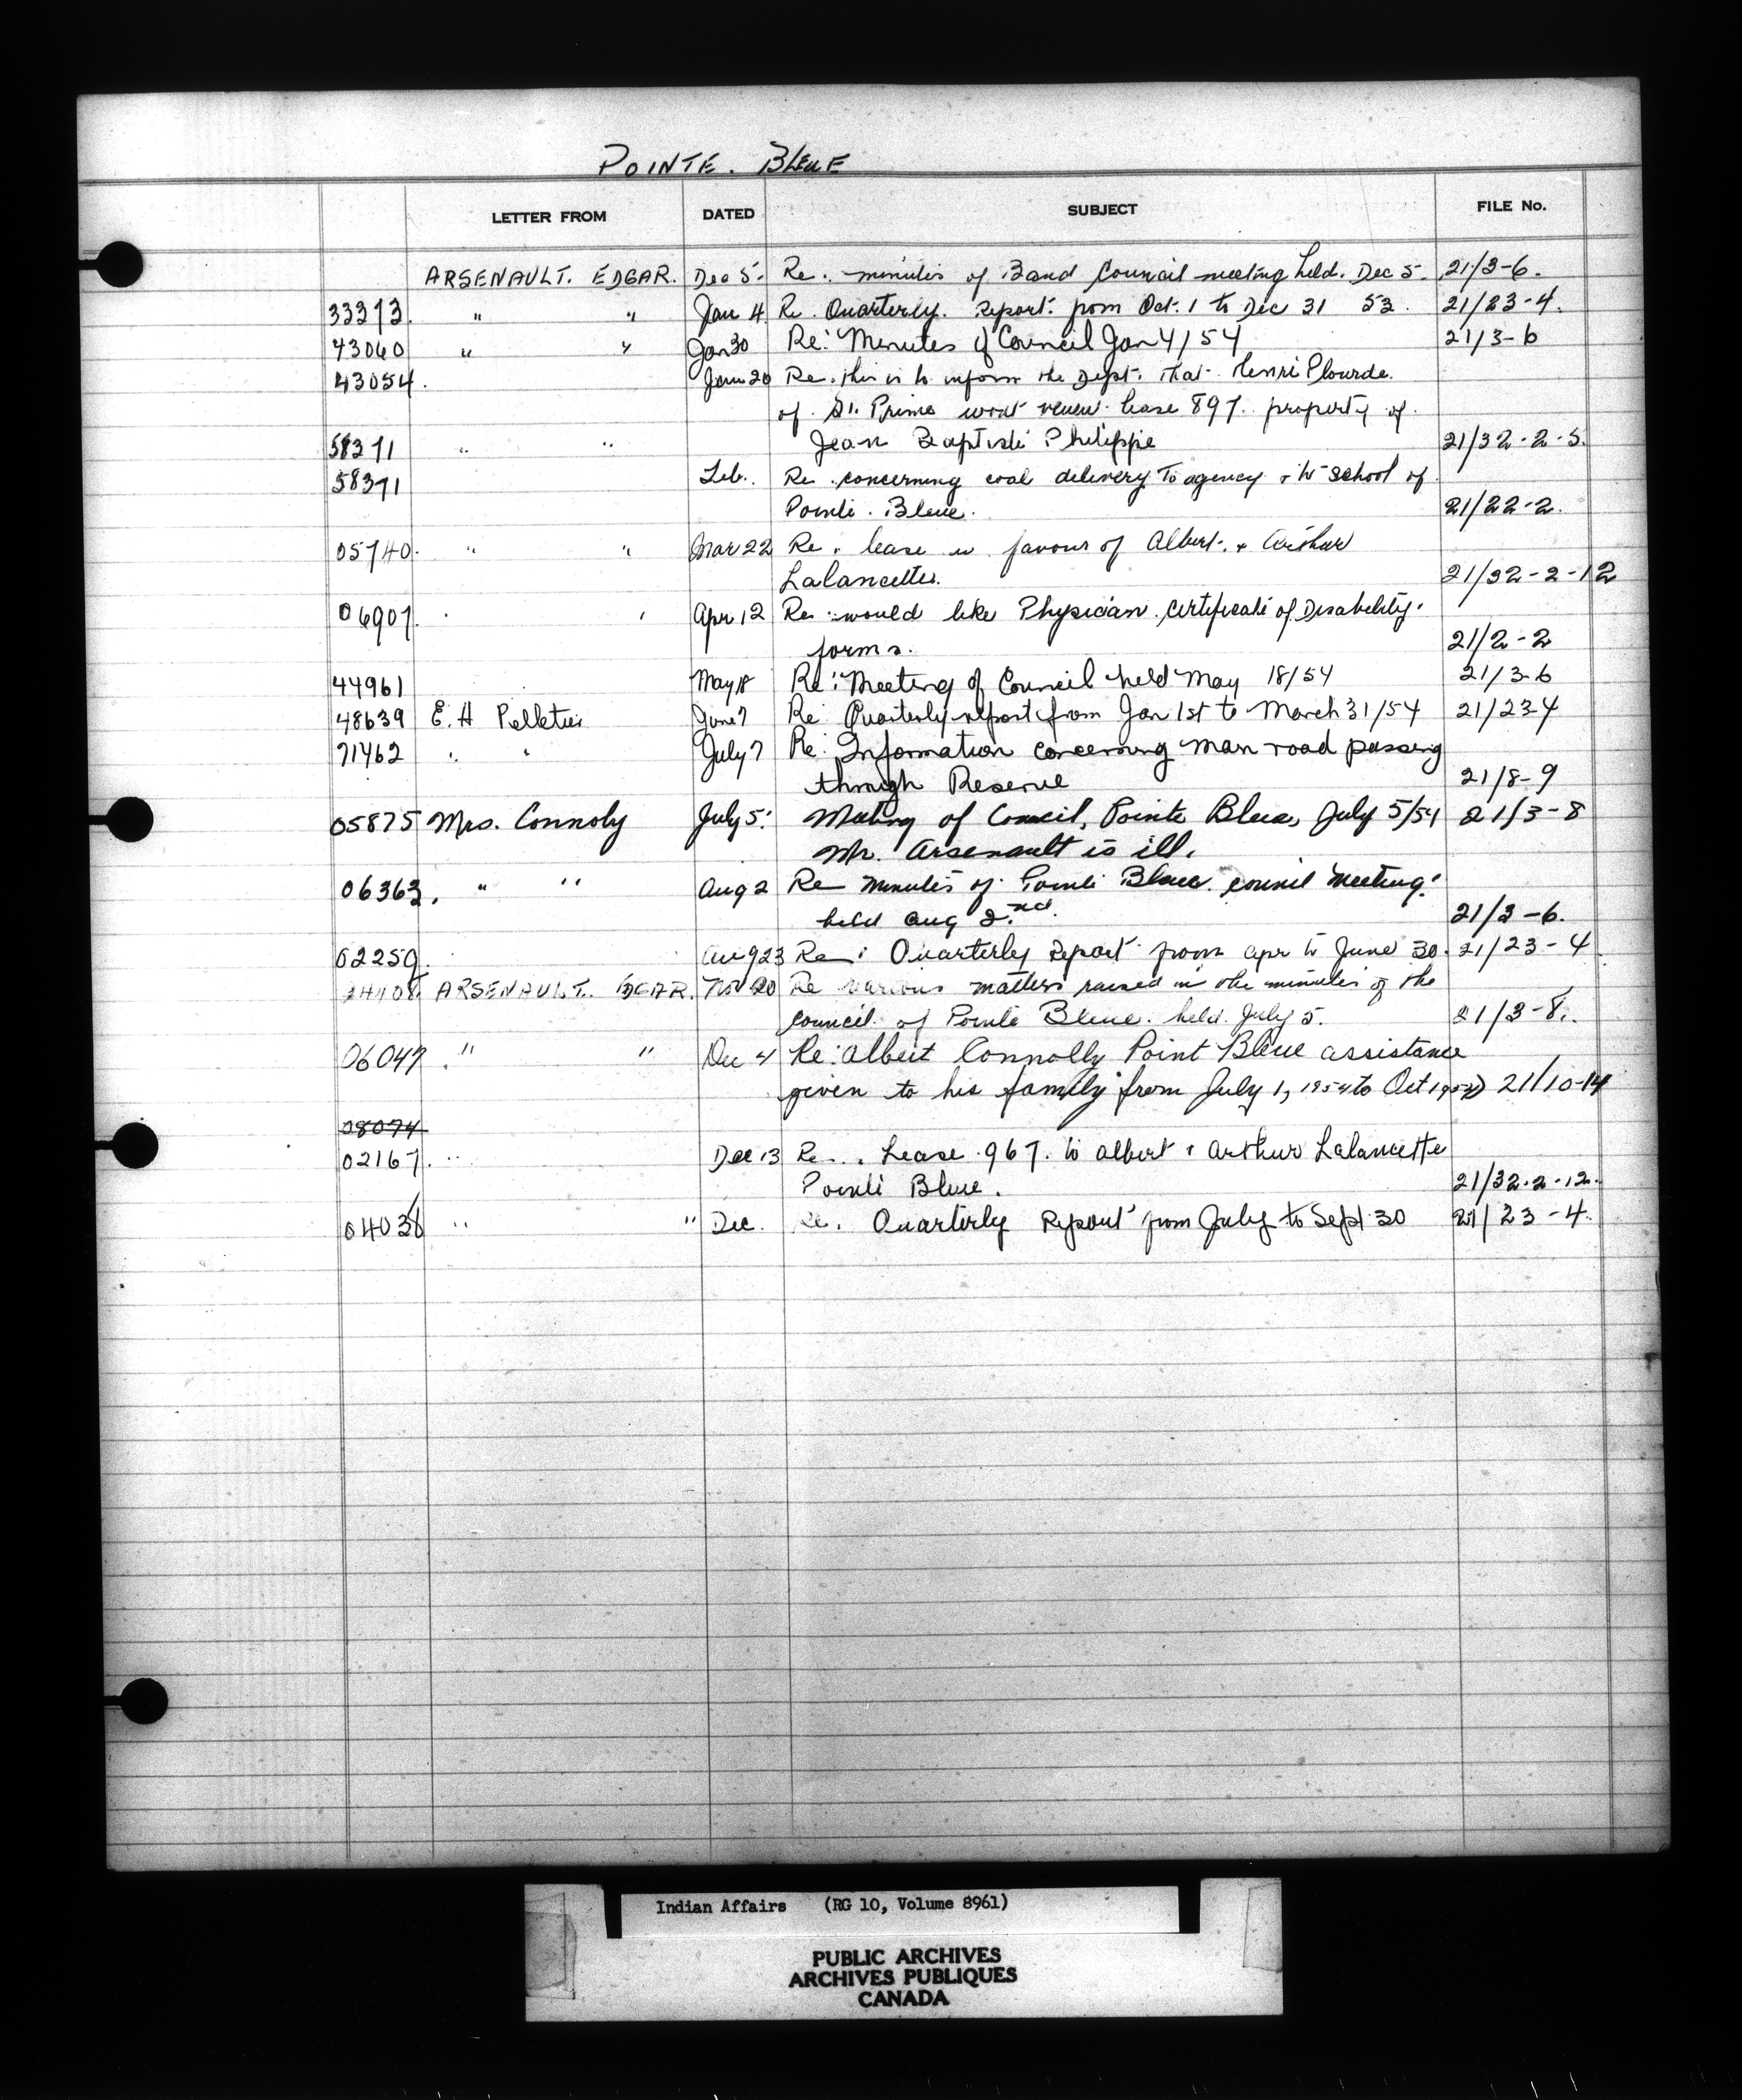 POINTE. BLEUE
LETTER FROM DATED SUBJECT FILE No.
ARSENAULT. EDGAR. Dec 5. Re. minutes of Band Council meeting held. Dec 5. 21/3-6.
33373. " " Jan 4 Re. Quarterly. Report. from Oct. 1 to Dec 31 53. 21/23-4.
43060 " " Jan 30 Re: Minutes of Council Jan 4/54 21/3-6
43054. Jan 20 Re. this is to inform the Dept. that. Henri Plourde.
of. St. Prime wont renew lease 897. property of.
58371 " " Jean Baptiste Philippe 21/32-2-5.
58371 Feb. Re. concerning coal delivery to agency & to school of
Pointe. Bleue. 21/22-2.
05740. " " Mar 22 Re. lease in favour of Albert. & Arthur
Lalancette. 21/32-2-12
06907. " " Apr 12 Re would like Physician. Certificate of Disability.
forms. 21/2-2
44961 May 18 Re: Meeting of Council held May 18/54 21/3-6
48639 E. H Pelletier June 7 Re: Quarterly report from Jan 1st to March 31/54 21/23-4
71462 " " July 7 Re: Information concerning main road passing
through Reserve 21/8-9
05875 Mrs. Connoly July 5. Meeting of Council, Pointe Bleue, July 5/54 21/3-8
Mr. Arsenault is ill.
06363. " " Aug 2 Re minutes of Pointe Bleue. council meeting.
held Aug 2nd. 21/3-6.
02259. Aug 23 Re: Quarterly Report from Apr to June 30. 21/23-4
ARSENAULT. EDGAR. Nov 20 Re various matters raised in the minutes of the
council. of Pointe Bleue. held. July 5. 21/3-8.
06047. " " Dec 4 Re: Albert Connolly Point Bleue assistance
given to his family from July 1, 1954 to Oct 1954) 21/10-14
08074
02167. " Dec 13 Re. Lease 967. to Albert & Arthur Lalancette
Pointe Bleue. 21/32.2-12.
04036 " " Dec. Re. Quarterly Report from July to Sept 30 21/23-4.
Indian Affairs (RG 10, Volume 8961)
PUBLIC ARCHIVES
ARCHIVES PUBLIQUES
CANADA